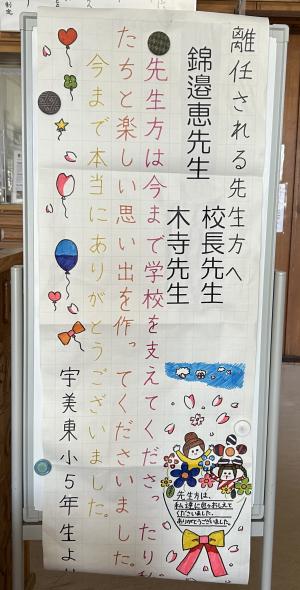 離任される先生方へ
錦邉恵先生
校長先生
木寺先生
先生方は今まで学校を支えてくださったり私
たちと楽しい思い出を作ってくださいました。
今まで本当にありがとうございました。
宇美東小5年生より
先生方は、
私達に色々おしえて
くださいました。
ありがとうございました。